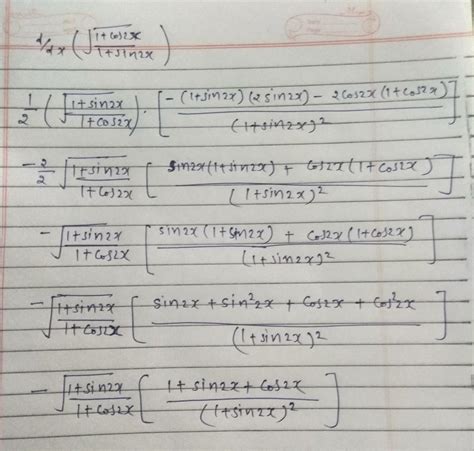 d/dx (√(1+cos2x)/(1+sin2x))
1/2 (√(1+sin2x)/(1+cos2x)) · [(-(1+sin2x)(2sin2x) - 2cos2x(1+cos2x))/(1+sin2x)²]
-2/2 √(1+sin2x)/(1+cos2x) [(sin2x(1+sin2x) + cos2x(1+cos2x))/(1+sin2x)²]
- √(1+sin2x)/(1+cos2x) [(sin2x(1+sin2x) + cos2x(1+cos2x))/(1+sin2x)²]
- √(1+sin2x)/(1+cos2x) [(sin2x + sin²2x + cos2x + cos²2x)/(1+sin2x)²]
- √(1+sin2x)/(1+cos2x) [(1+sin2x+cos2x)/(1+sin2x)²]